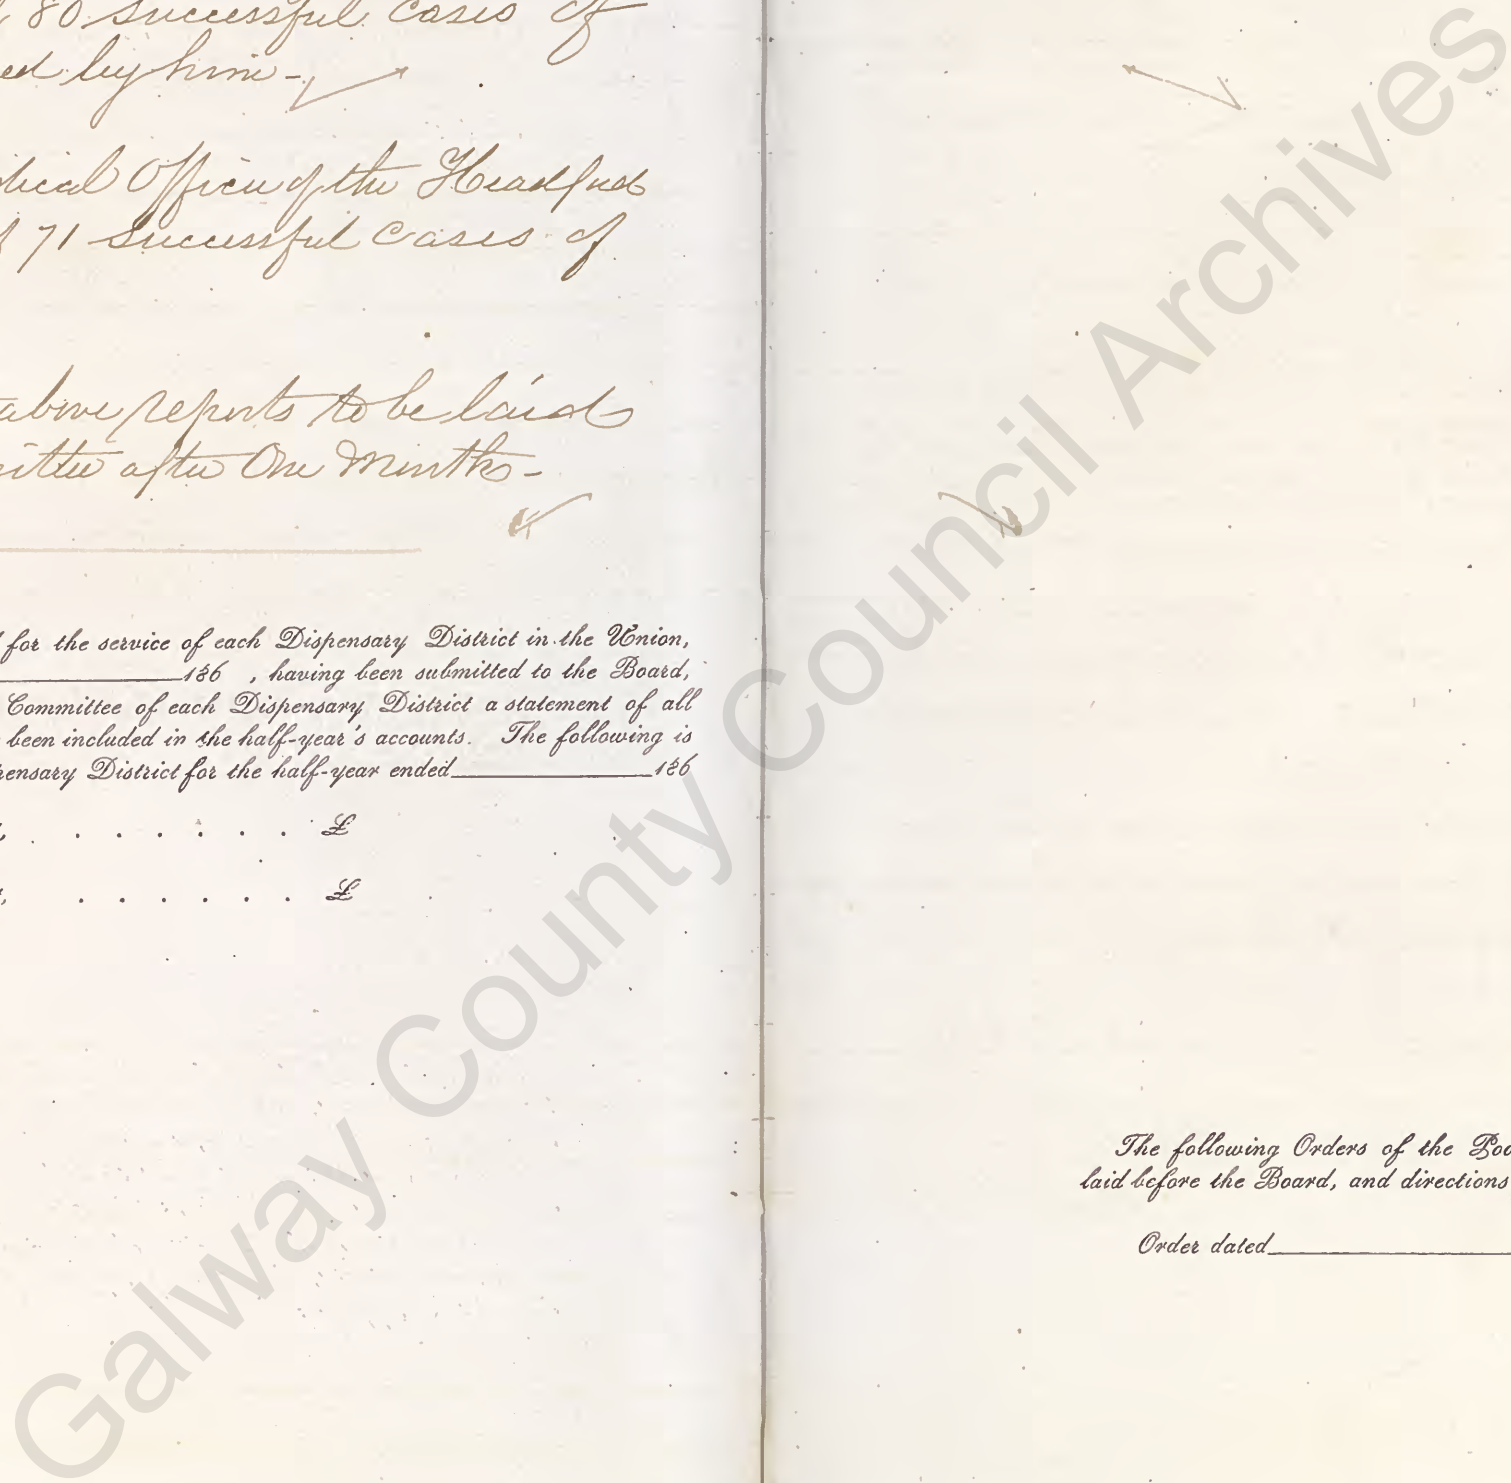 80 Successful Cases of
ed by him -
dical Officer of the Headford
71 Successful Cases of
above reports to be laid
mittee after One Months -
for the service of each Dispensary District in the Union,
186 , having been submitted to the Board,
Committee of each Dispensary District a statement of all
been included in the half-year's accounts. The following is
pensary District for the half-year ended 186
. . . . . . . £
. . . . . . £
The following Orders of the Poo
laid before the Board, and directions
Order dated
Galway County Council Archives